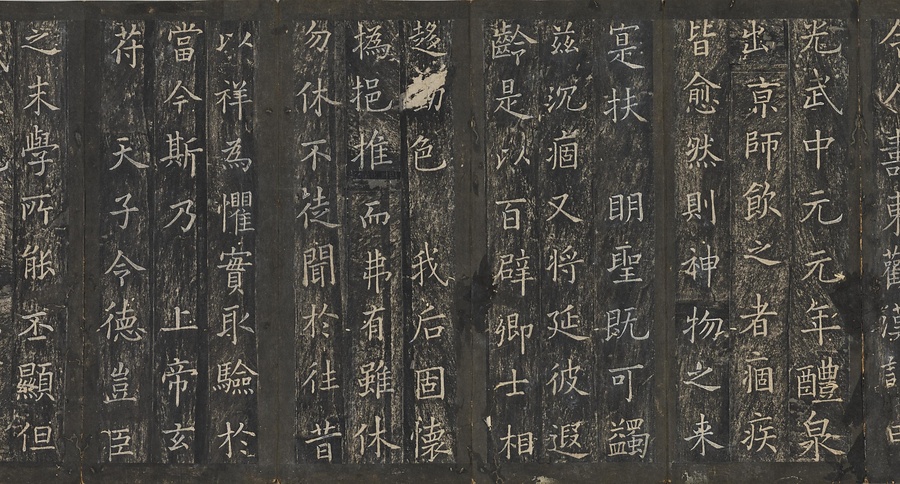 令人壽東觀漢記曰
光武中元元年醴泉
出京師飲之者痼疾
皆愈然則神物之来
寔扶 眀聖既可蠲
茲沉痼又將延彼遐
齡是以百辟卿士相
趍動色 我后固懷
撝挹推而弗有雖休
勿休不徒聞於往昔
以祥為懼實取驗於
當今斯乃 上帝玄
苻 天子令德豈臣
之末學所能丕顯但